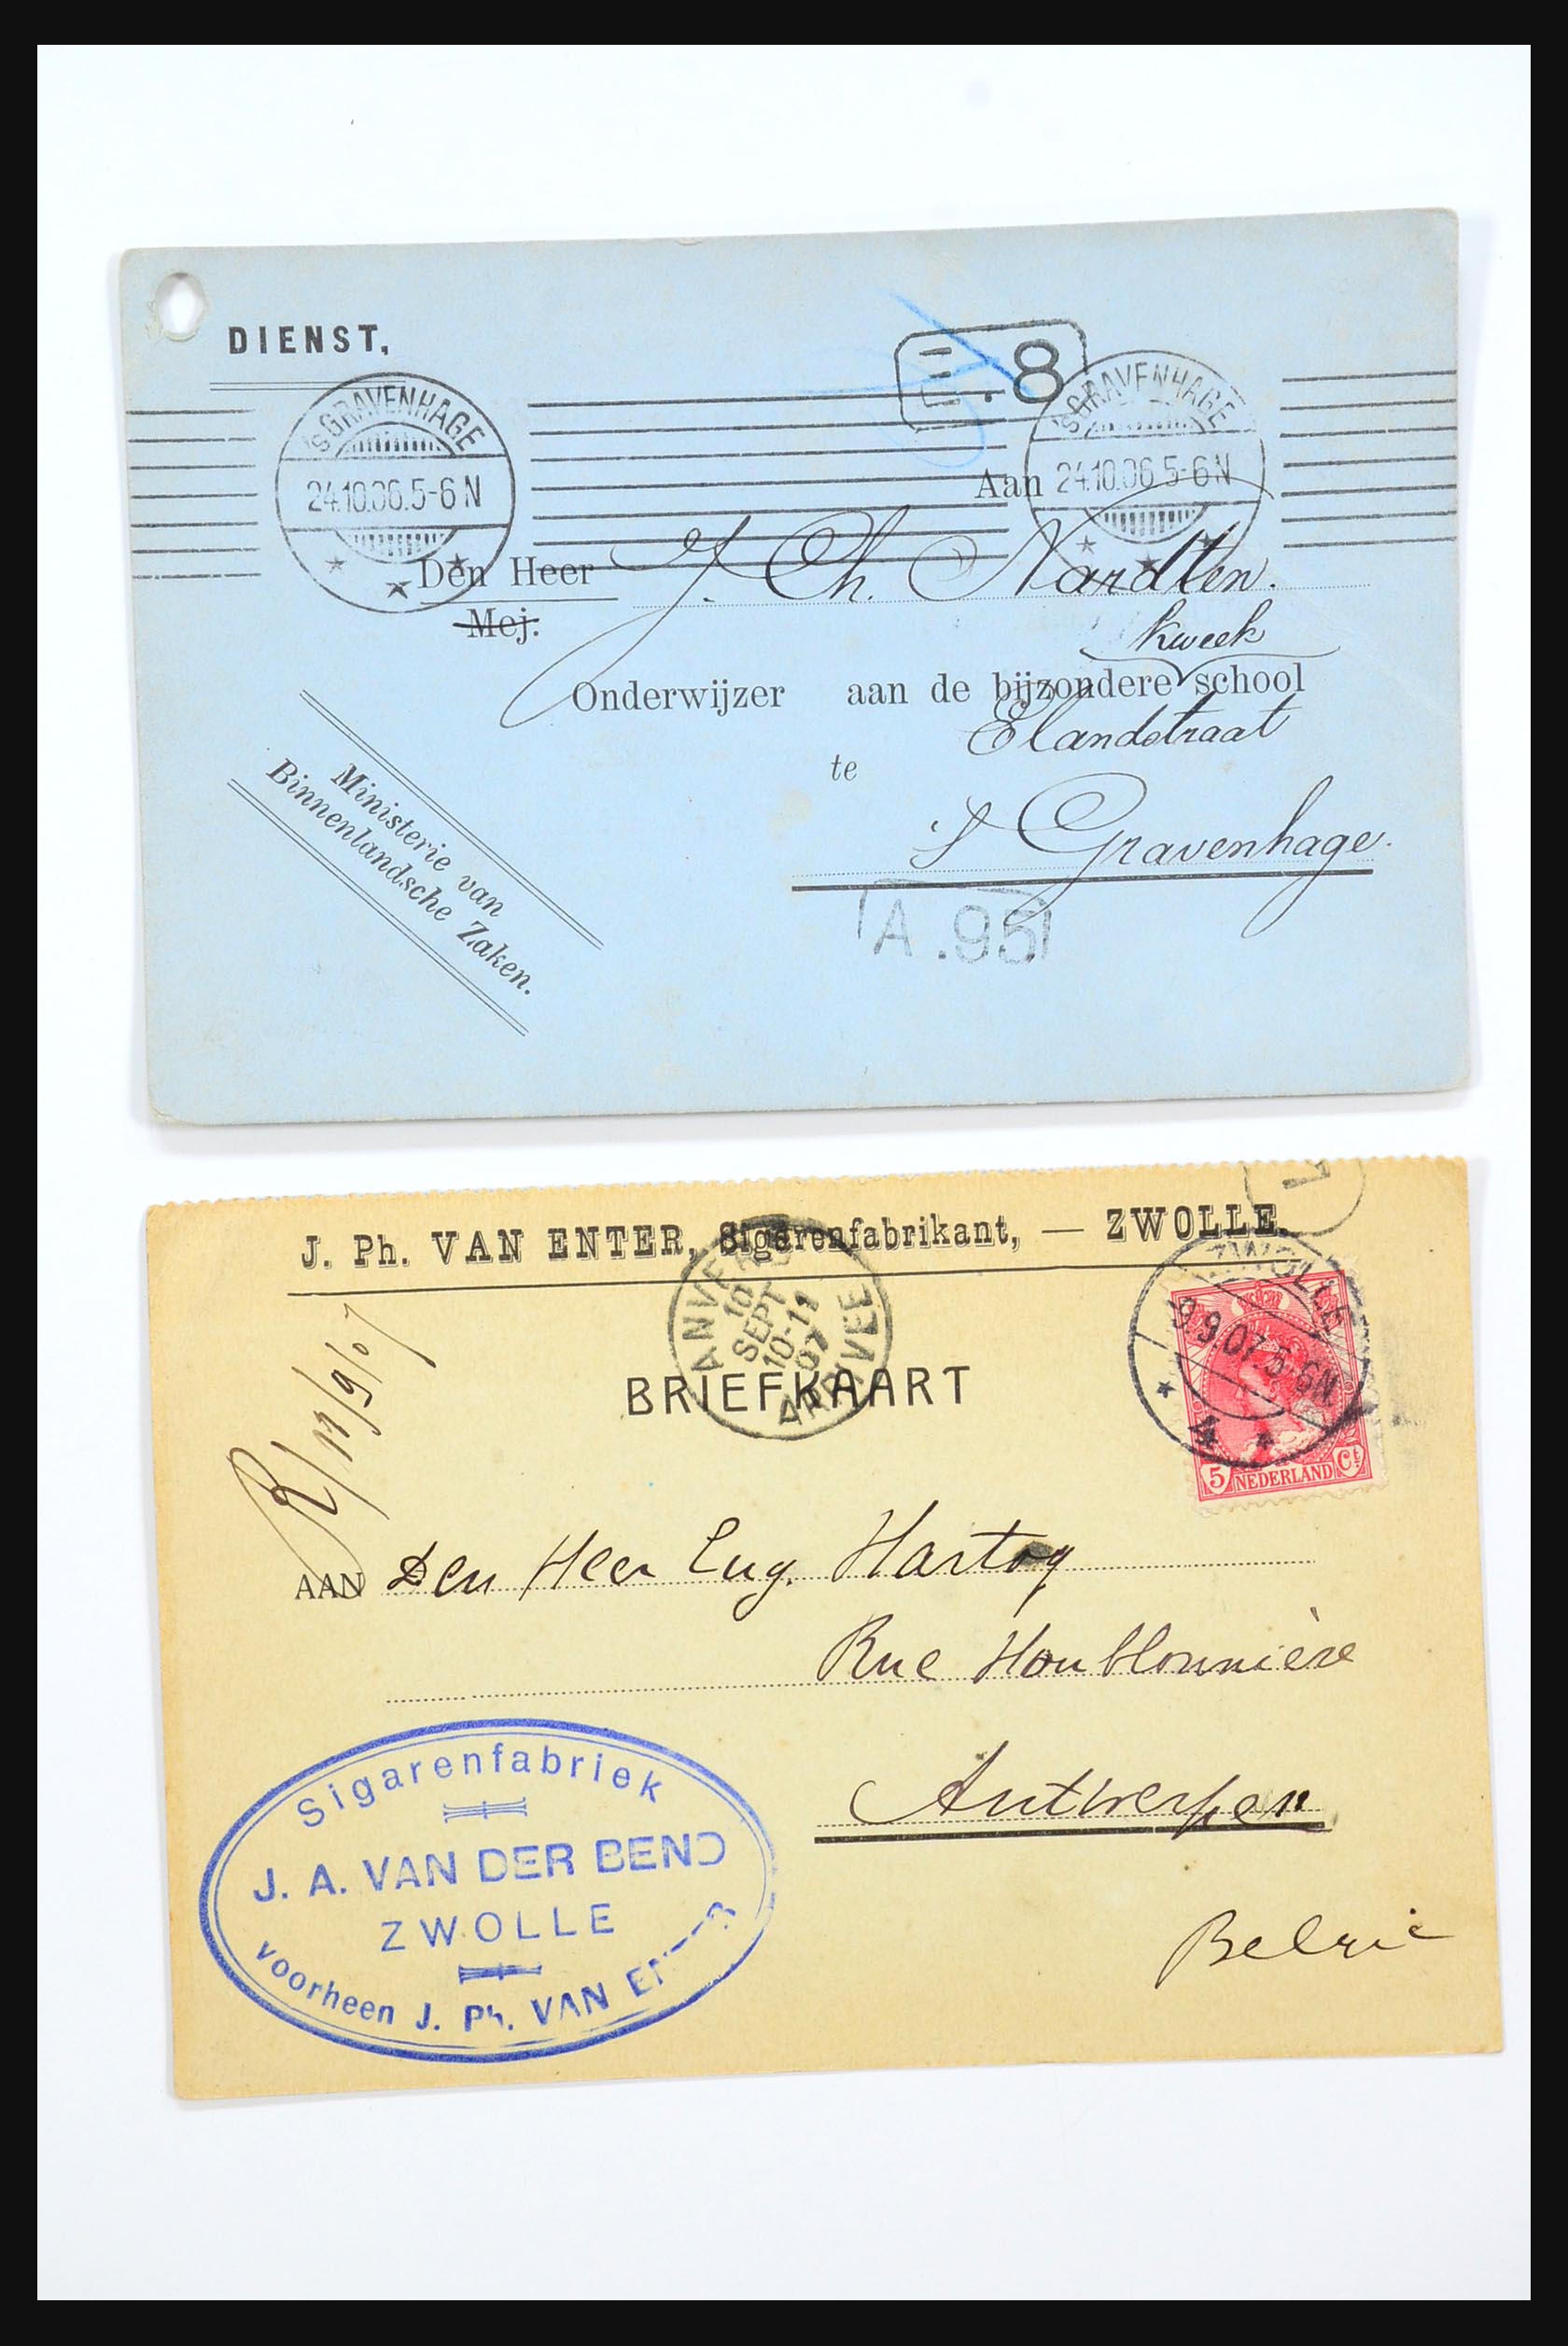 DIENST,
'sGRAVENHAGE
24.10.06.5-6N
.8
'sGRAVENHAGE
24.10.06 5-6N
Aan
Den Heer J. Ch. Nardten.
Mej.
kweek
Onderwijzer aan de bijzondere school
Elandstraat
te
's Gravenhage.
Ministerie van
Binnenlandsche Zaken.
A.95
J. Ph. VAN ENTER, Sigarenfabrikant, — ZWOLLE.
ANVERS
10
SEPT
10-11
07
ARRIVEE
ZWOLLE
9 9.07.5-6N
4
5 NEDERLAND Ct
BRIEFKAART
R/11/9/07
AAN Den Heer Eug. Hartog
Rue Houblonnière
Antwerpen
België
Sigarenfabriek
J. A. VAN DER BEND
ZWOLLE
voorheen J. Ph. VAN ENTER